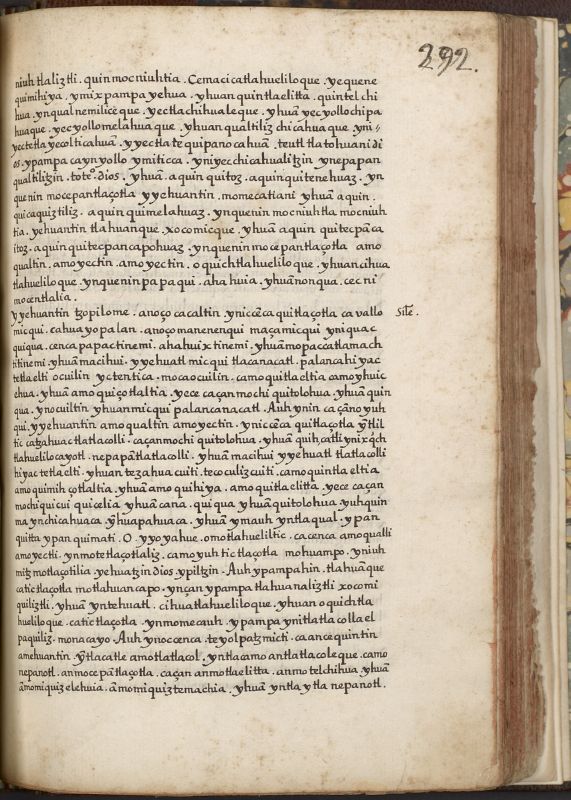 292.
niuh tlaliztli . quin mocniuhtia . Cemaci ca tlahueliloque . yequene
quimihiya . ymixpampa yehua . yhuan quin tlaelitta . quin telchi
hua . yn qualnemiliceque . yectlachihualeque . yhuā yecyollo chipa
huaque . yecyollo melahuaque . yhuan qualtiliz chicahuaque . yni-
yectetlayecolticahuā . yyectlatequipanocahuā . teutl tlatohuani di
os . ypampa ca ynyollo ymiticca . yniyecchicahualitzin ynepapan
qualtilitzin . toteº. dios . yhuā . aquin quitoz . aquin quitenehuaz . yn
quenin mocepantlaçotla yyehuantin . momecatiani yhuā aquin .
quicaquiztiliz . aquin quimelahuaz . ynquenin mocniuhtla mocniuh
tia . yehuantin tlahuanque . xocomicque . yhuā aquin quitecpāca
itoz . aquin quitecpancapohuaz . ynquenin mocepantlaçotla amo
qualtin . amo yectin . amo yectin . oquichtlahueliloque . yhuan cihua
tlahueliloque . ynquenin papaqui . ahahuia . yhuā nonqua . cecni
mocentlalia .
yyehuantin tzopilome . anoço cacaltin yniccēca quitlaçotla cavallo Sile .
micqui . eahuayo palan . anoço manenenqui maçamicqui yniquac
quiqua . cenca papactinemi . ahahuixtinemi . yhuā mopaccatlamach
titinemi . yhuā macihui . yyehuatl micqui tlacanacatl . palanca hiyac
tetlaelti ocuilin yctentica . mocaocuilin . camo quitlaeltia camo yhuic
ehua . yhuā amo quiçotlaltia . yece caçan mochi quitolohua . yhuā quin
qua . ynocuiltin yhuan micqui palancanacatl . Auh ynin caçāno yuh
qui . yyehuantin amo qualtin amo yectin . yniccēca quitlaçotla ȳtlil
tic catzahuac tlatlacolli . caçan mochi quitolohua . yhuā quih
tlahuelilocayotl . nepapā tlatlacolli . yhuā macihui yyehuatl tlatlacolli
hiyac tetlaelti . yhuan tezahuacuiti . tecoculizcuiti . camo quintlaeltia
amo quimihçotlaltia . yhuā amo quihiya . amo quitlaelitta . yece caçan
mochi quicui quicelia yhuā cana . quiqua yhuā quitolohua yuhquin
ma ynchicahuaca ȳhuapahuaca . yhuā ymauh yntlaqual . ypan
quitta ypan quimati . O yyoyahue . omotlahueliltic . cacenca amo qualli
amo yectli . ynmotetlaçotlaliz . camo yuh tictlaçotla mohuampo . yniuh
mitzmotlaçotilia yehuatzin dios . ypiltzin . Auh ypampa hin . tlahuāque
ca tictlaçotla motlahuancapo . ynçan ypampa tlahuanaliztli xocomi
quiliztli . yhuā yntehuatl . cihuatlahueliloque . yhuan oquichtla
hueliloque . ca tictlaçotla ynmomecauh . ypampa ynitlatlacollael
paquiliz . monacayo . Auh ynoccenca . teyolpatzmicti . ca ancequintin
amehuantin ȳtlacatle amotlatlacol . yntlacamo antlatlacoleque . camo
nepanotl . anmocepātlaçotla . caçan anmotlaelitta . anmotelchihua yhuā
āmomiquizelehuia . āmomiquiztemachia . yhuā yntla ytla nepanotl .